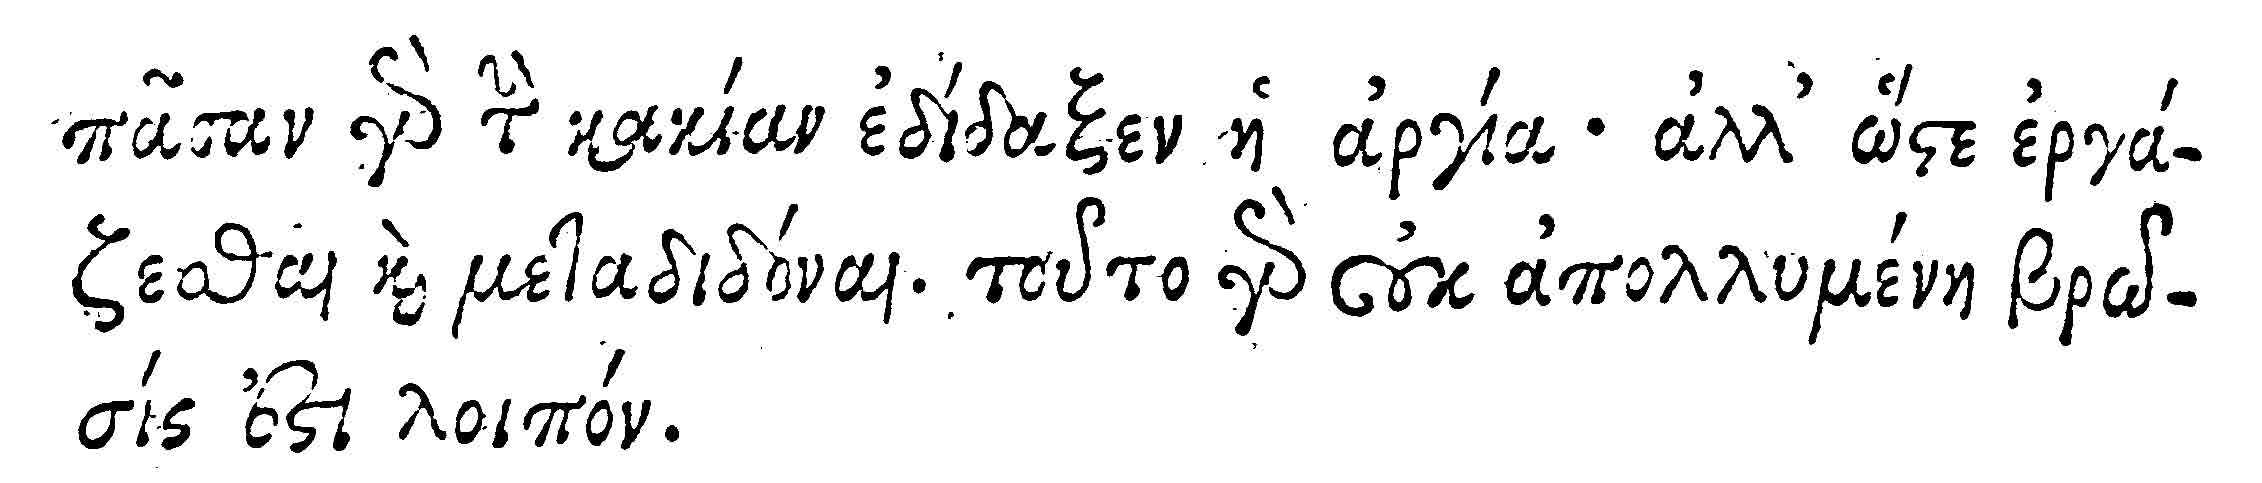 πᾶσαν γὰρ τὴν κακίαν ἐδίδαξεν ἡ ἀργία· ἀλλ' ὥστε ἐργά-
ζεσθαι καὶ μεταδιδόναι. τοῦτο γὰρ οὐκ ἀπολλυμένη βρῶ-
σίς ἐστι λοιπόν.